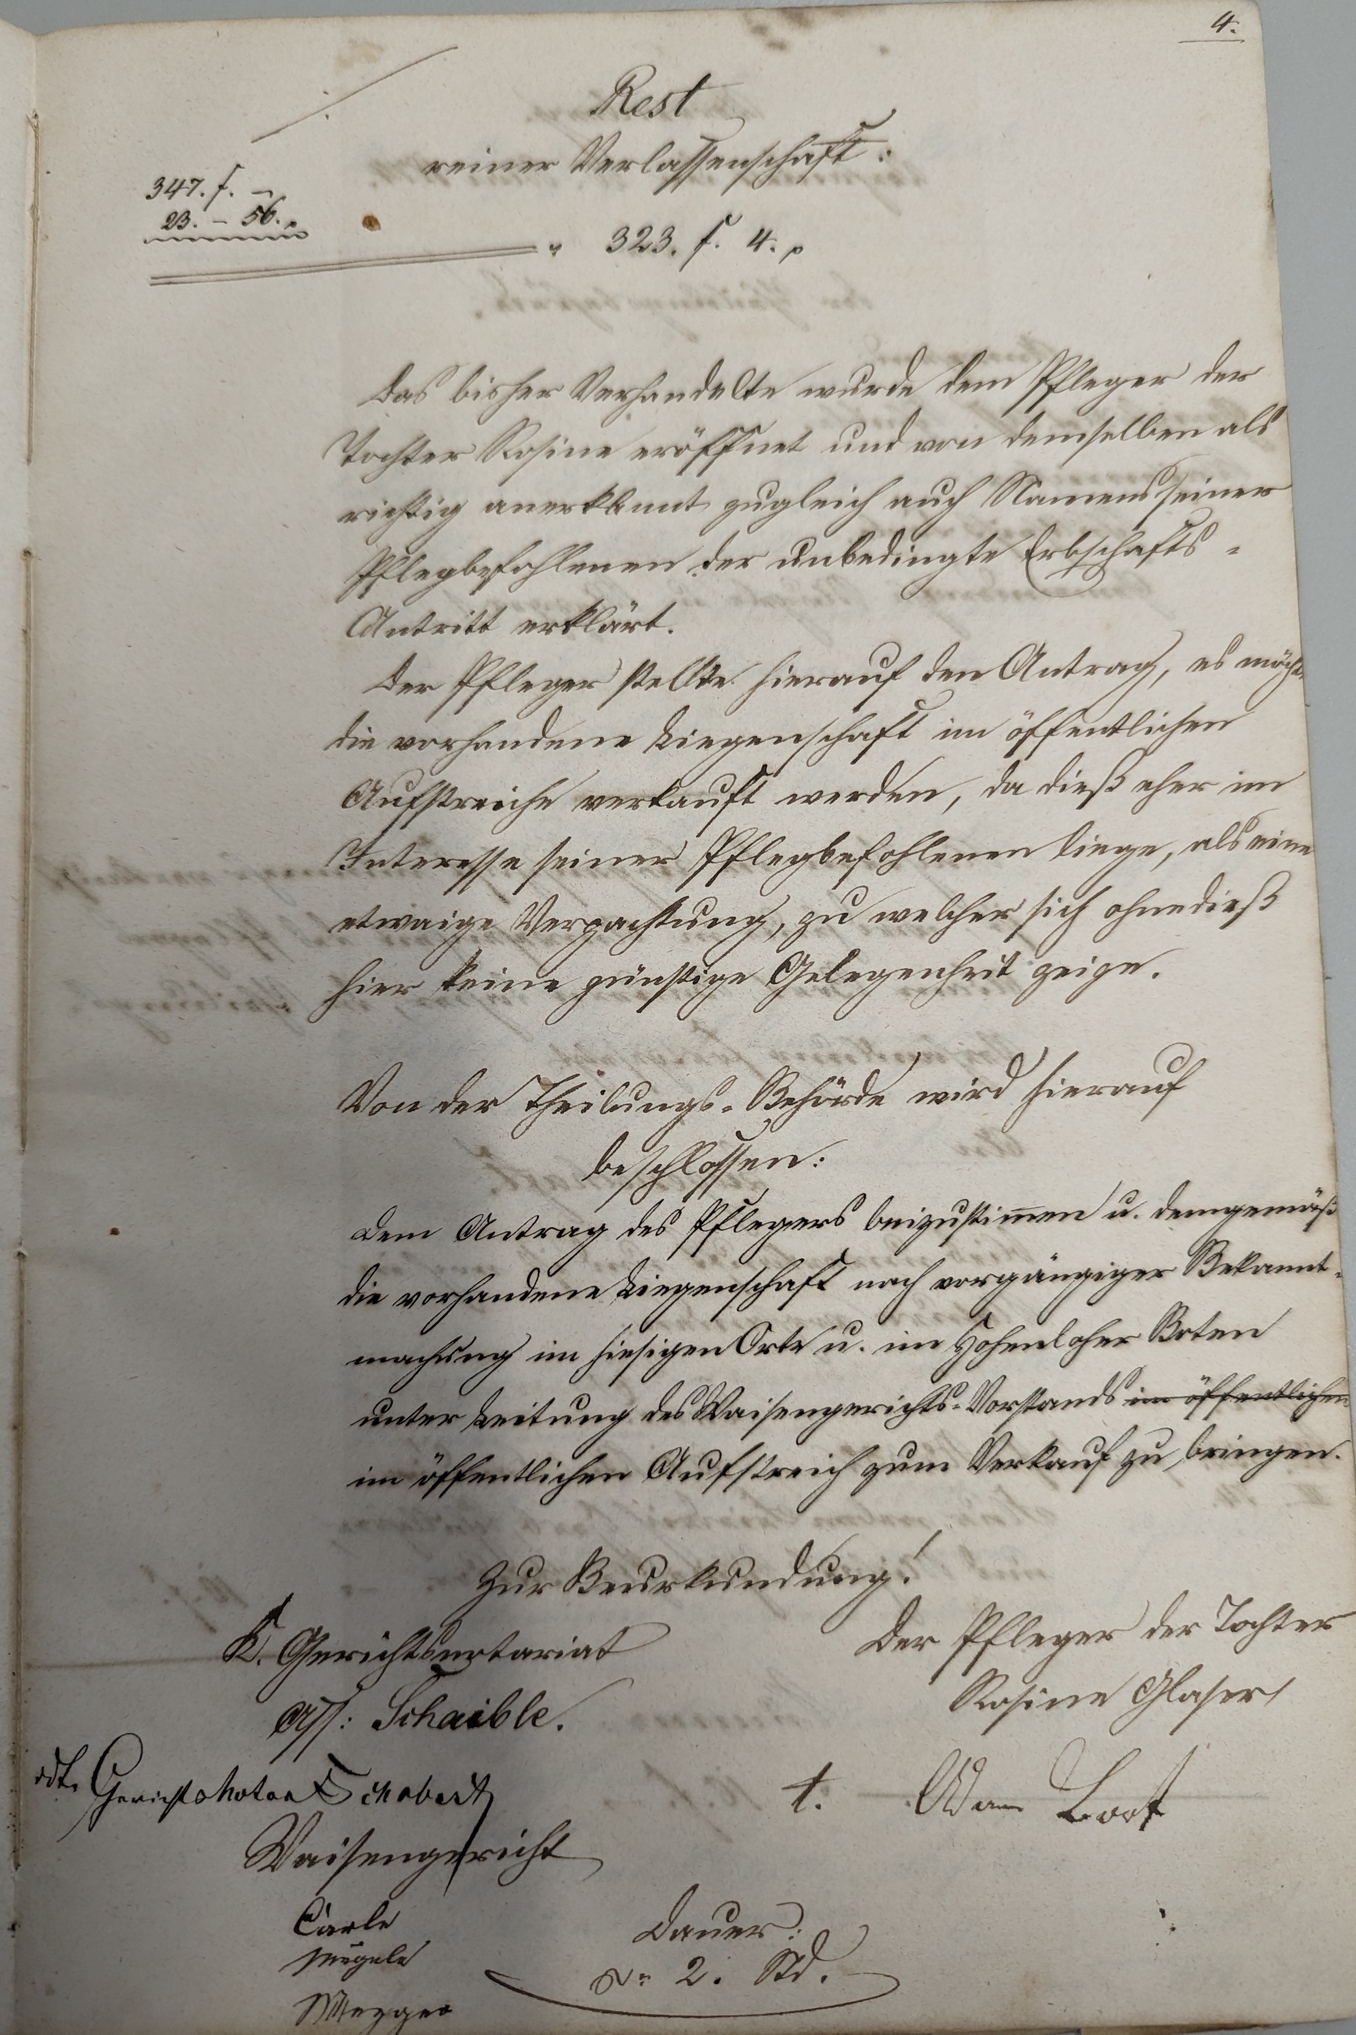 4.
Rest
reiner Verlassenschaft:
347. f. –
23. – 56.
" 323. f. 4.
Das bisher Verhandelte wurde dem Pfleger der
Tochter Rosine eröffnet und von demselben als
richtig anerkannt zugleich auch Namens seiner
Pflegbefohlenen der unbedingte Erbschafts-
Antritt erklärt.
Der Pfleger stellte hierauf den Antrag, es möchte
die vorhandene Liegenschaft im öffentlichen
Aufstreiche verkauft werden, da dieß eher im
Interesse seiner Pflegbefohlenen liege, als eine
etwaige Verpachtung, zu welcher sich ohnedieß
hier keine günstige Gelegenheit zeige.
Von der Theilungs-Behörde wird hierauf
beschlossen:
Dem Antrag des Pflegers beizustim̄en u. demgemäß
die vorhandene Liegenschaft nach vorgängiger Bekannt-
machung im hiesigen Orte u. im Hohenloher Boten
unter Leitung des Waisengerichts-Vorstands im öffentlichen
im öffentlichen Aufstreich zum Verkauf zu bringen.
Zur Beurkundung!
K. Gerichtsnotariat
Ass: Schaible.
Der Pfleger der Tochter
Rosine Glaser
vdt. Gerichtsnotar Schobert
t. Adam Boot
Waisengericht
Carle
Nägele
Mezger
Dauer:
2. Std.